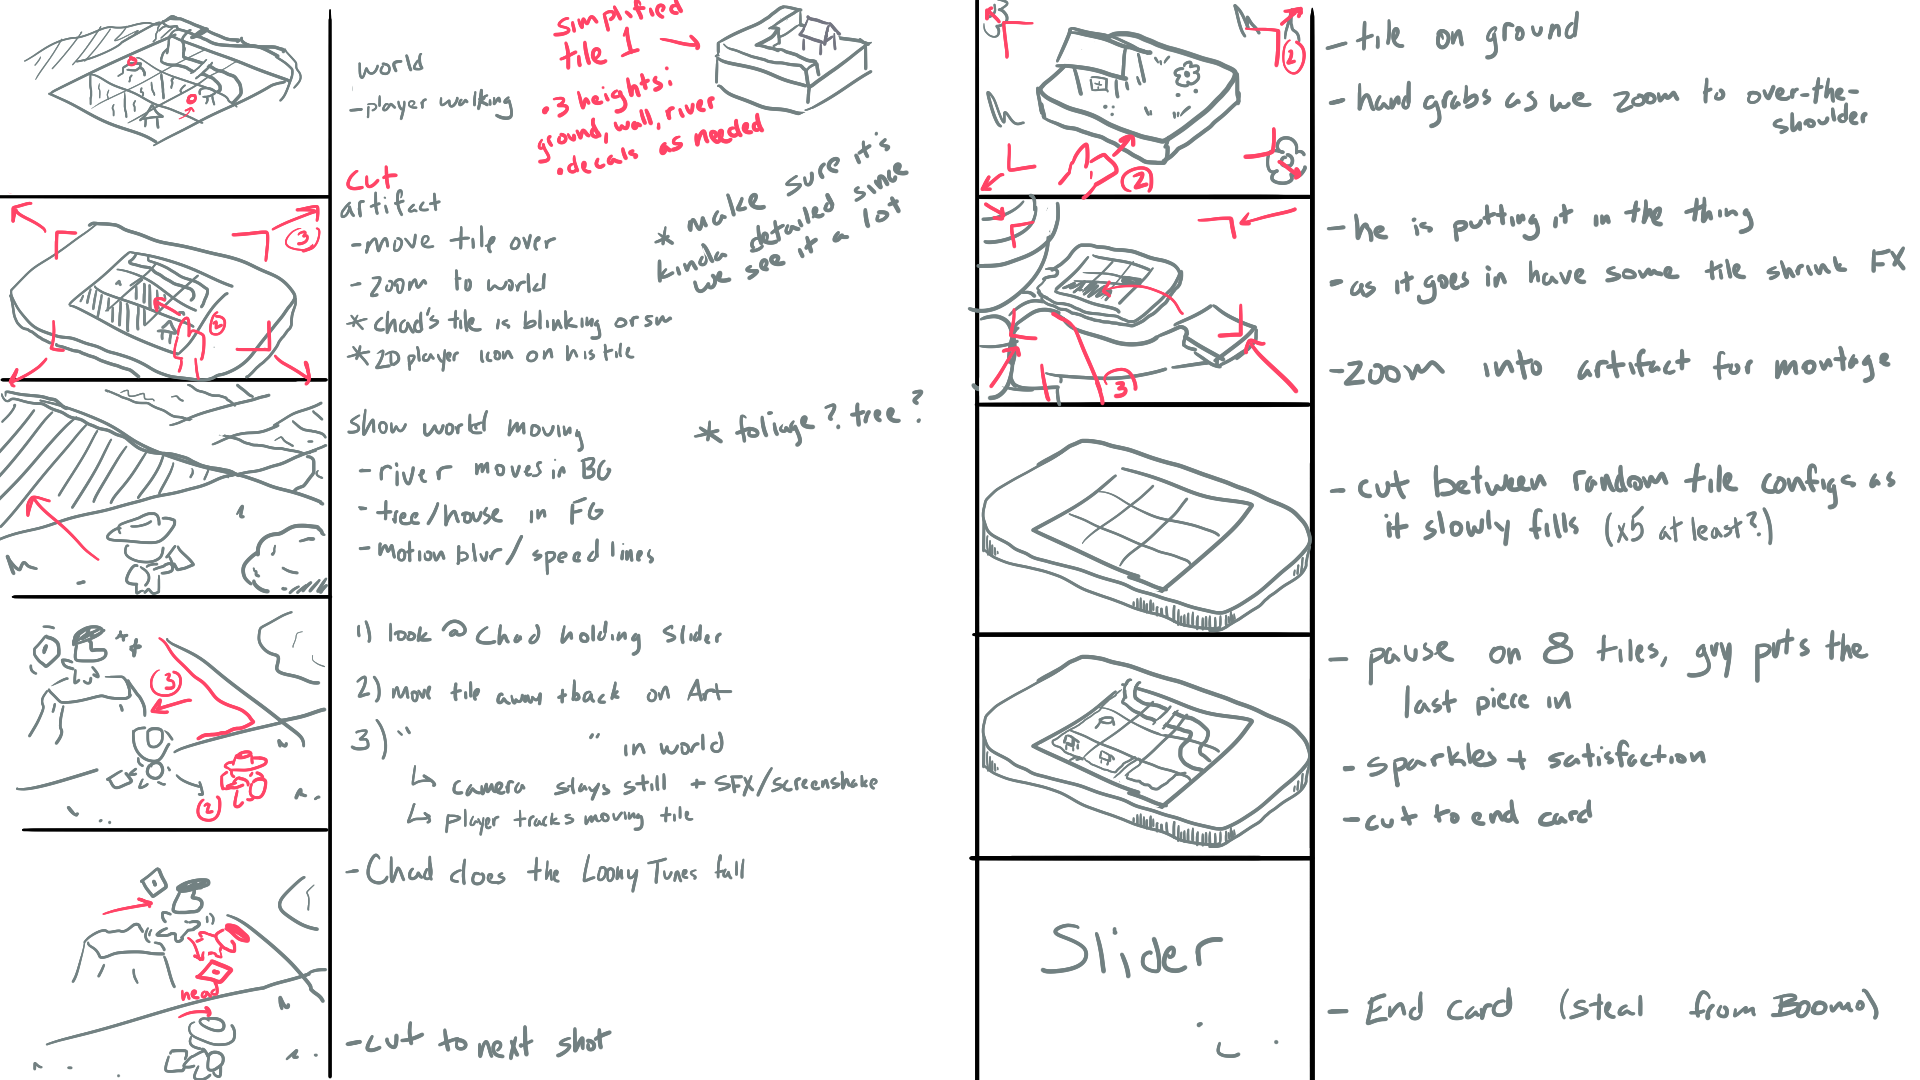 world
-player walking
simplified
tile 1
• 3 heights:
ground, wall, river
• decals as needed
cut
artifact
-move tile over
- zoom to world
* chad's tile is blinking or sm
* 2D player icon on his tile
* make sure it's
kinda detailed since
we see it a lot
3
2
show world moving
- river moves in BG
- tree/house in FG
- motion blur/speed lines
* foliage? tree?
1) look @ Chad holding slider
2) move tile away + back on Art
3) " " in world
↳ camera stays still + SFX/screenshake
↳ player tracks moving tile
3
2
- Chad does the Loony Tunes fall
head
-cut to next shot
2
2
- tile on ground
- hand grabs as we zoom to over-the-
shoulder
3
- he is putting it in the thing
- as it goes in have some tile shrink FX
-zoom into artifact for montage
- cut between random tile configs as
it slowly fills (x5 at least?)
- pause on 8 tiles, guy puts the
last piece in
- sparkles + satisfaction
-cut to end card
Slider
- End card (steal from Boomo)